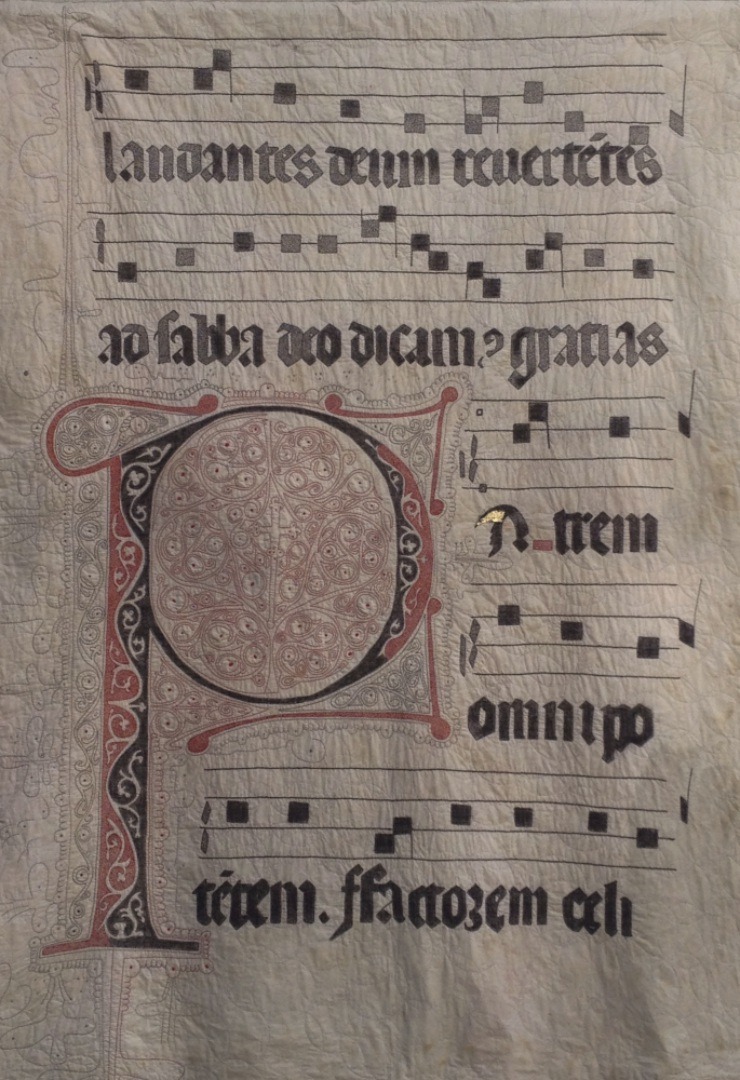 laudantes deum reuertētes
ad sabba deo dicam? gratias
P A trem
omnipo
tētem. ffactorem celi